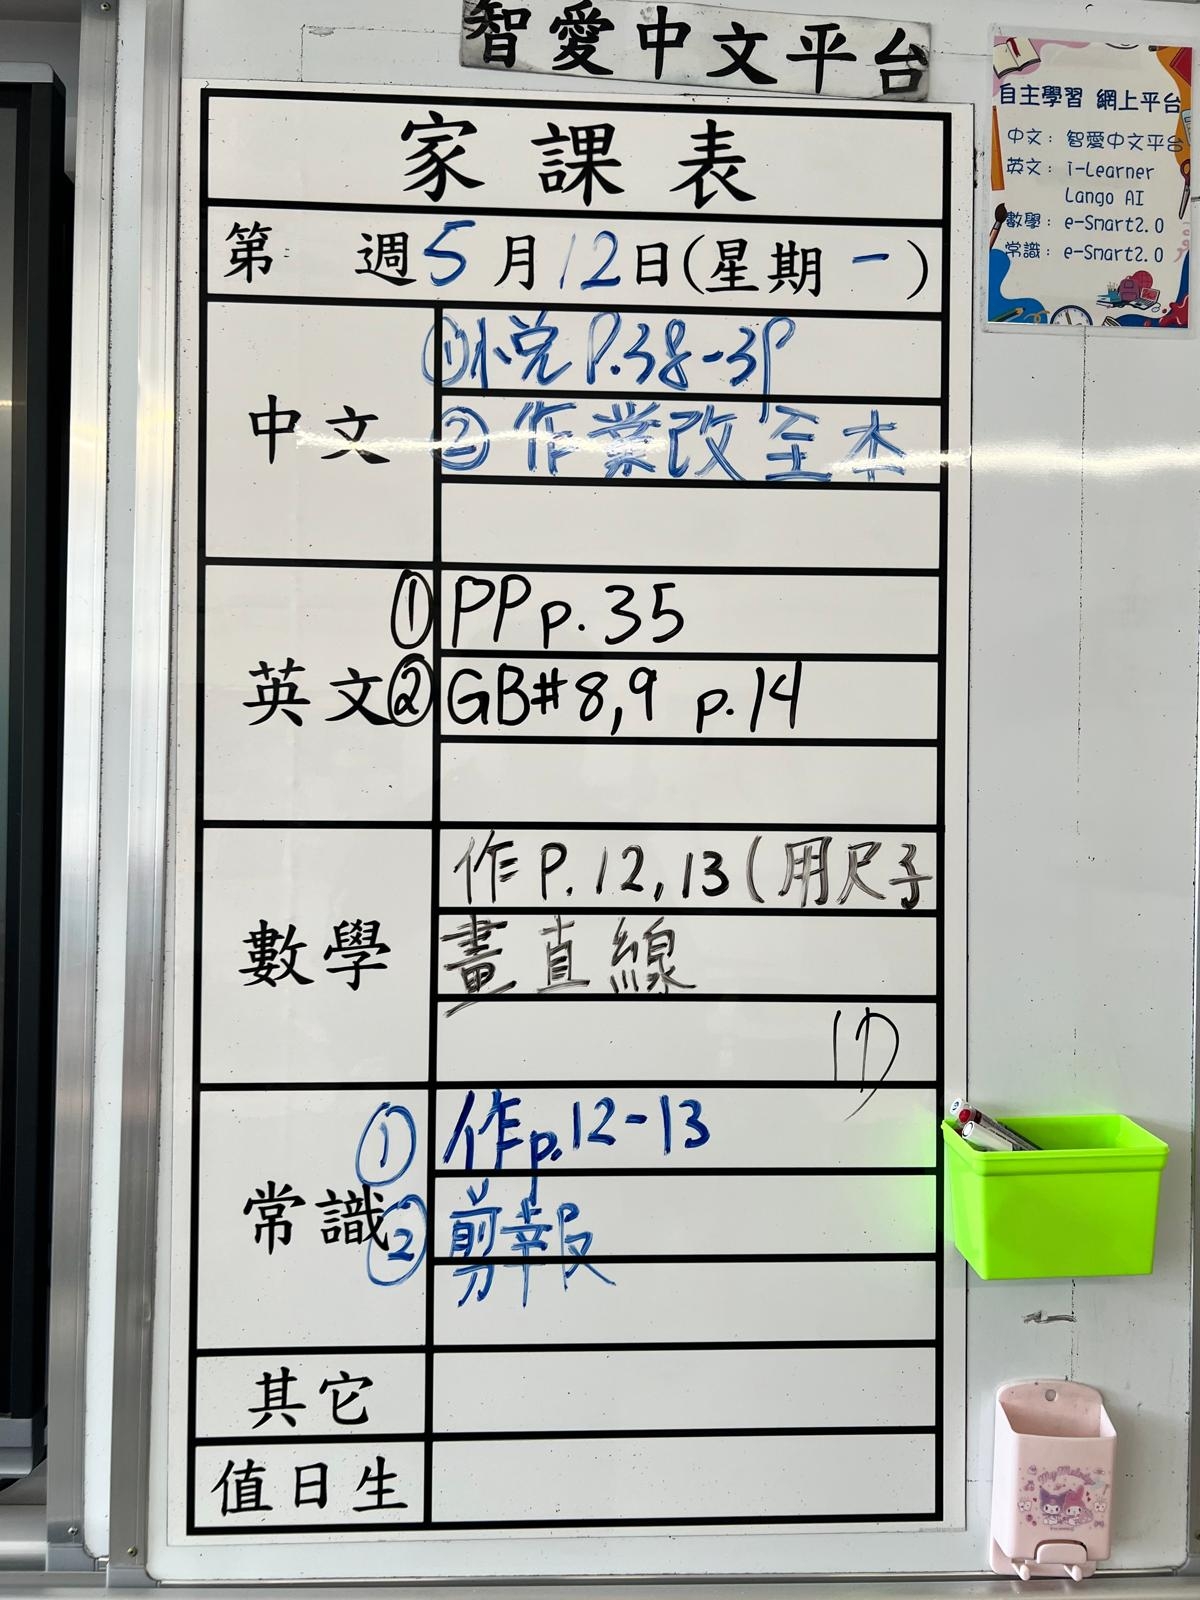 智愛中文平台
家課表
第 週5月12日(星期一)
中文
①悅P.38-39
②作業改至本
英文
①PP p.35
②GB#8,9 p.14
數學
作P.12,13(用尺子
畫直線
常識
①作p.12-13
②剪報
其它
值日生
自主學習 網上平台
中文：智愛中文平台
英文：i-Learner
Lango AI
數學：e-Smart2.0
常識：e-Smart2.0
My Melody